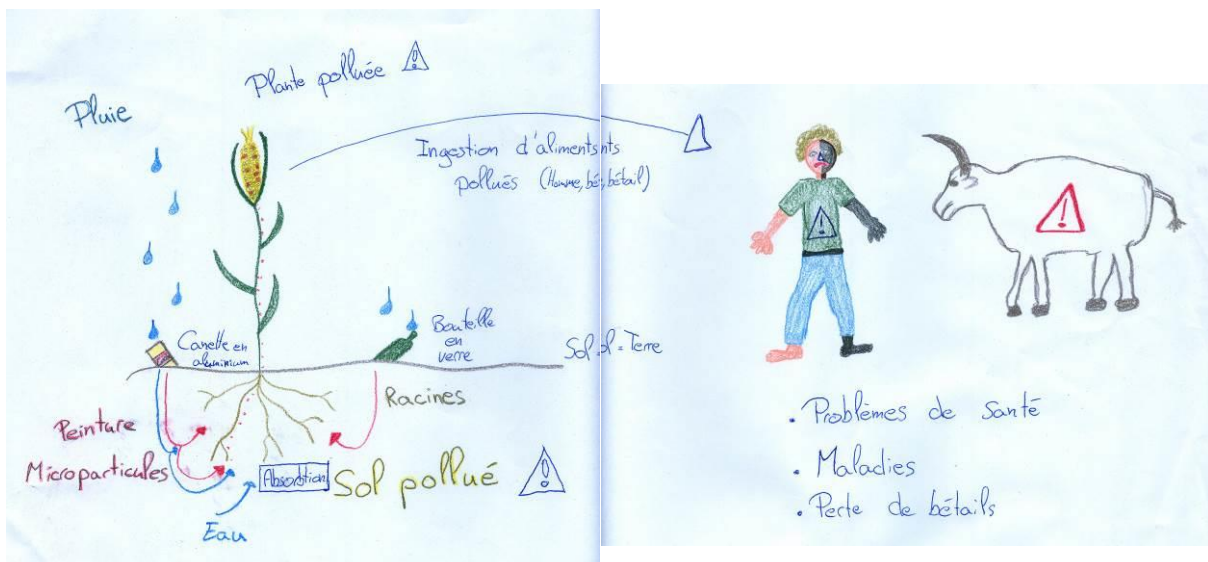 Plante polluée
Pluie
Ingestion d'alimentsnts
pollués (Homme, bét, bétail)
Canette en
aluminium
Bouteille
en
verre
Sol sol = Terre
Racines
Peinture
Microparticules
Absorbtion
Sol pollué
Eau
. Problèmes de Santé
. Maladies
. Perte de bétails